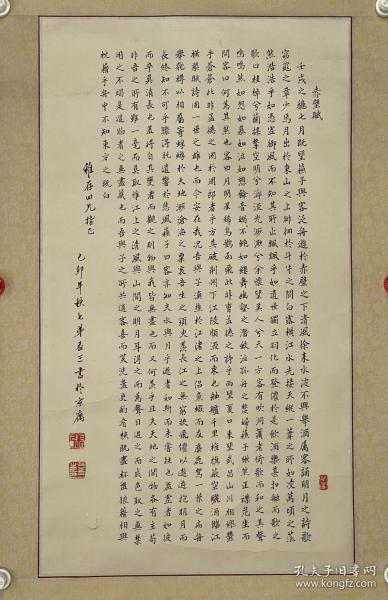 赤壁賦
壬戌之秋七月既望蘇子與客泛舟遊於赤壁之下清風徐來水波不興舉酒屬客誦明月之詩歌
窈窕之章少焉月出於東山之上徘徊於斗牛之間白露橫江水光接天縱一葦之所如凌萬頃之茫
然浩浩乎如憑虛御風而不知其所止飄飄乎如遺世獨立羽化而登僊於是飲酒樂甚扣舷而歌之
歌曰桂棹兮蘭槳擊空明兮泝流光渺渺兮余懷望美人兮天一方客有吹洞簫者倚歌而和之其聲
嗚嗚然如怨如慕如泣如愬餘音嫋嫋不絕如縷舞幽壑之潛蛟泣孤舟之嫠婦蘇子愀然正襟危坐而
問客曰何為其然也客曰月明星稀烏鵲南飛此非孟德之詩乎西望夏口東望武昌山川相繆鬱
乎蒼蒼此非孟德之困於周郎者乎方其破荊州下江陵順流而東也舳艫千里旌旗蔽空釃酒臨江
橫槊賦詩固一世之雄也而今安在哉況吾與子漁樵於江渚之上侶魚蝦而友麋鹿駕一葉之扁舟
舉匏樽以相屬寄蜉蝣於天地渺滄海之一粟哀吾生之須臾羨長江之無窮挾飛僊以遨遊抱明月而
長終知不可乎驟得託遺響於悲風蘇子曰客亦知夫水與月乎逝者如斯而未嘗往也盈虛者如彼
而卒莫消長也蓋將自其變者而觀之
則物與我皆無盡也而又何羨乎且夫天地之間物各有主苟
非吾之所有雖一毫而莫取惟江上之清風與山間之明月耳得之而為聲目遇之而成色取之無禁
用之不竭是造物者之無盡藏也而吾與子之所共適客喜而笑洗盞更酌肴核既盡杯盤狼藉相與
枕藉乎舟中不知東方之既白
雅存四兄指正
己卯年秋七弟
三書於京廬
孔夫子旧书网